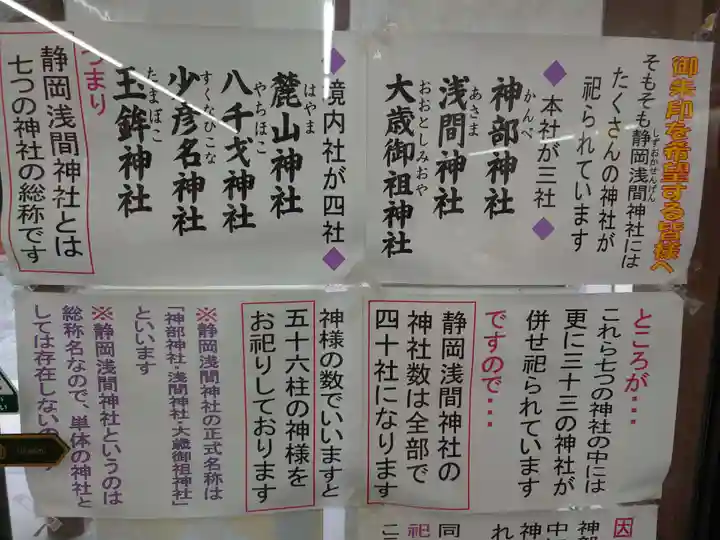 御朱印を希望する皆様へ
そもそも静岡浅間神社には
しずおかせんげん
たくさんの神社が
祀られています
◆本社が三社◆
神部神社
かんべ
浅間神社
あさま
大歳御祖神社
おおとしみおや
◆境内社が四社◆
麓山神社
はやま
八千戈神社
やちほこ
少彦名神社
すくなひこな
玉鉾神社
たまぼこ
つまり
静岡浅間神社とは
七つの神社の総称です
ところが･･･
これら七つの神社の中には
更に三十三の神社が
併せ祀られています
ですので･･･
静岡浅間神社の
神社数は全部で
四十社になります
神様の数でいいますと
五十六柱の神様を
お祀りしております
※静岡浅間神社の正式名称は
「神部神社・浅間神社・大歳御祖神社」
といいます
※静岡浅間神社というのは
総称名なので、単体の神社と
しては存在しない
因
神部
中
神
れ
同
祀